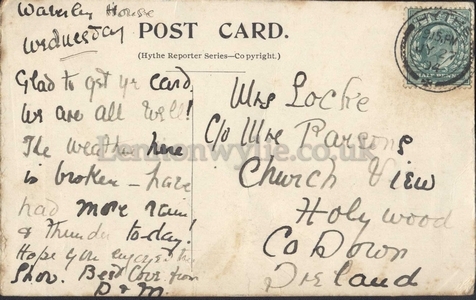 Waverley House
Wednesday
POST CARD.
(Hythe Reporter Series—Copyright.)
HYTHE
Glad to get yr card
We are all well!
The weather here
is broken – have
had more rain
& thunder to-day!
Hope you enjoyed the
Show. Best Love from
P & M
Mrs Locke
C/o Mrs Parsons
Church View
Holywood
Co Down
Ireland
Lennonwylie.co.uk